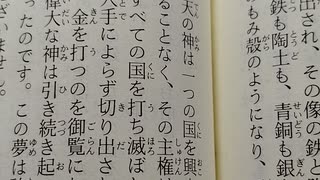 出され、その像の鉄と
鉄も陶土も、青銅も銀
のもみ殻のようになり、
天の神は一つの国を興
ることなく、その主権
すべての国を打ち滅ぼ
人手によらず切り出さ
金を打つのを御覧に
偉大な神は引き続き起
ったのです。この夢は
ざいません。